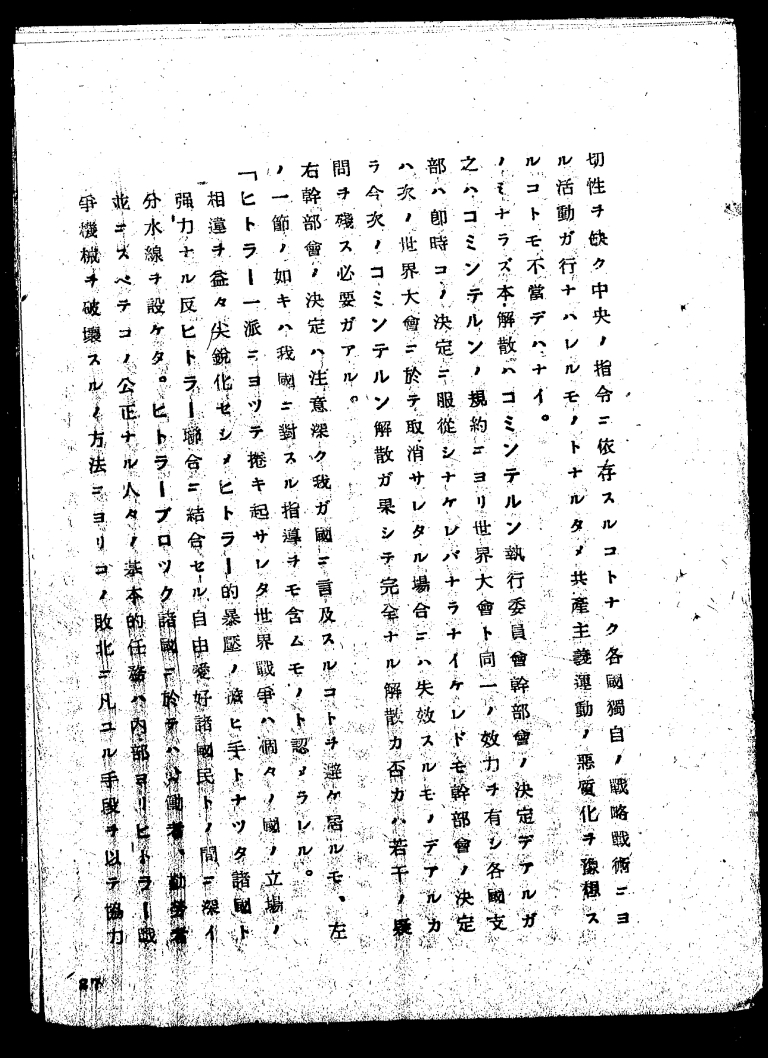 切性ヲ缺ク中央ノ指令ニ依存スルコトナク各國獨自ノ戰略戰術ニヨ
ル活動ガ行ナハレルモノトナルタメ共產主義運動ノ惡質化ヲ豫想ス
ルコトモ不當デハナイ。
ノミナラズ本解散ハコミンテルン執行委員會幹部會ノ決定デアルガ
之ハコミンテルンノ規約ニヨリ世界大會ト同一ノ效力ヲ有シ各國支
部ハ卽時コノ決定ニ服從シナケレバナラナイケレドモ幹部會ノ決定
ハ次ノ世界大會ニ於テ取消サレタル場合ニハ失效スルモノデアルカ
ラ今次ノコミンテルン解散ガ果シテ完全ナル解散カ否カハ若干ノ疑
問ヲ殘ス必要ガアル。
右幹部會ノ決定ハ注意深ク我ガ國ニ言及スルコトヲ避ケ居ルモ、左
ノ一節ノ如キハ我國ニ對スル指導ヲモ含ムモノト認メラレル。
「ヒトラー一派ニヨツテ捲キ起サレタ世界戰爭ハ個々ノ國ノ立場ノ
相違ヲ益々尖銳化セシメヒトラー的暴壓ノ擔ヒ手トナツタ諸國ト
强力ナル反ヒトラー聯合ニ結合セル自由愛好諸國民トノ間ニ深イ
分水線ヲ設ケタ。ヒトラーブロツク諸國ニ於テハ勞働者、勤勞者
並ニスベテコノ公正ナル人々ノ基本的任務ハ內部ヨリヒトラー戰
爭機械ヲ破壞スルノ方法ニヨリコノ敗北ニ凡ユル手段ヲ以テ協力
27